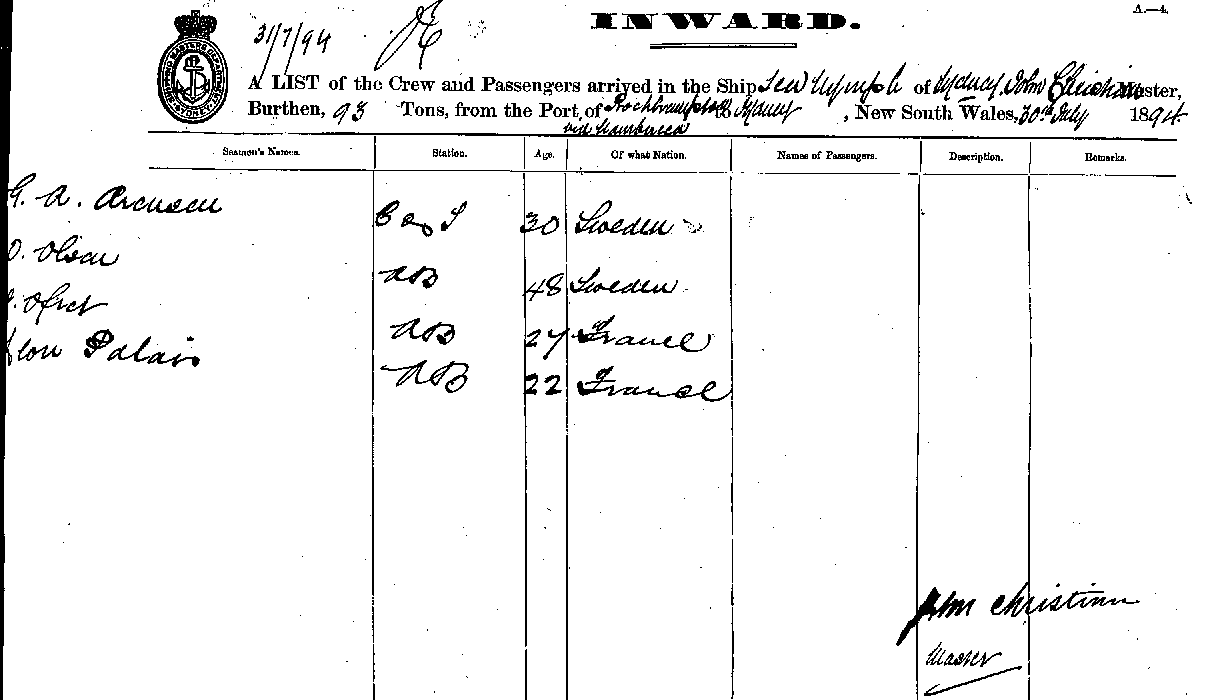 A.—4.
INWARD.
31/7/94
A LIST of the Crew and Passengers arrived in the Ship Sea Nymph of Sydney, John Christian Master,
Burthen, 93 Tons, from the Port of Rockhampton to Sydney, New South Wales, 30th July 1894
via
Seamen's Names. Station. Age. Of what Nation. Names of Passengers. Description. Remarks.
G. A. 30 Sweden
O. Olsen AB 48 Sweden
AB 27 France
Palais AB 22 France
John Christian
Master